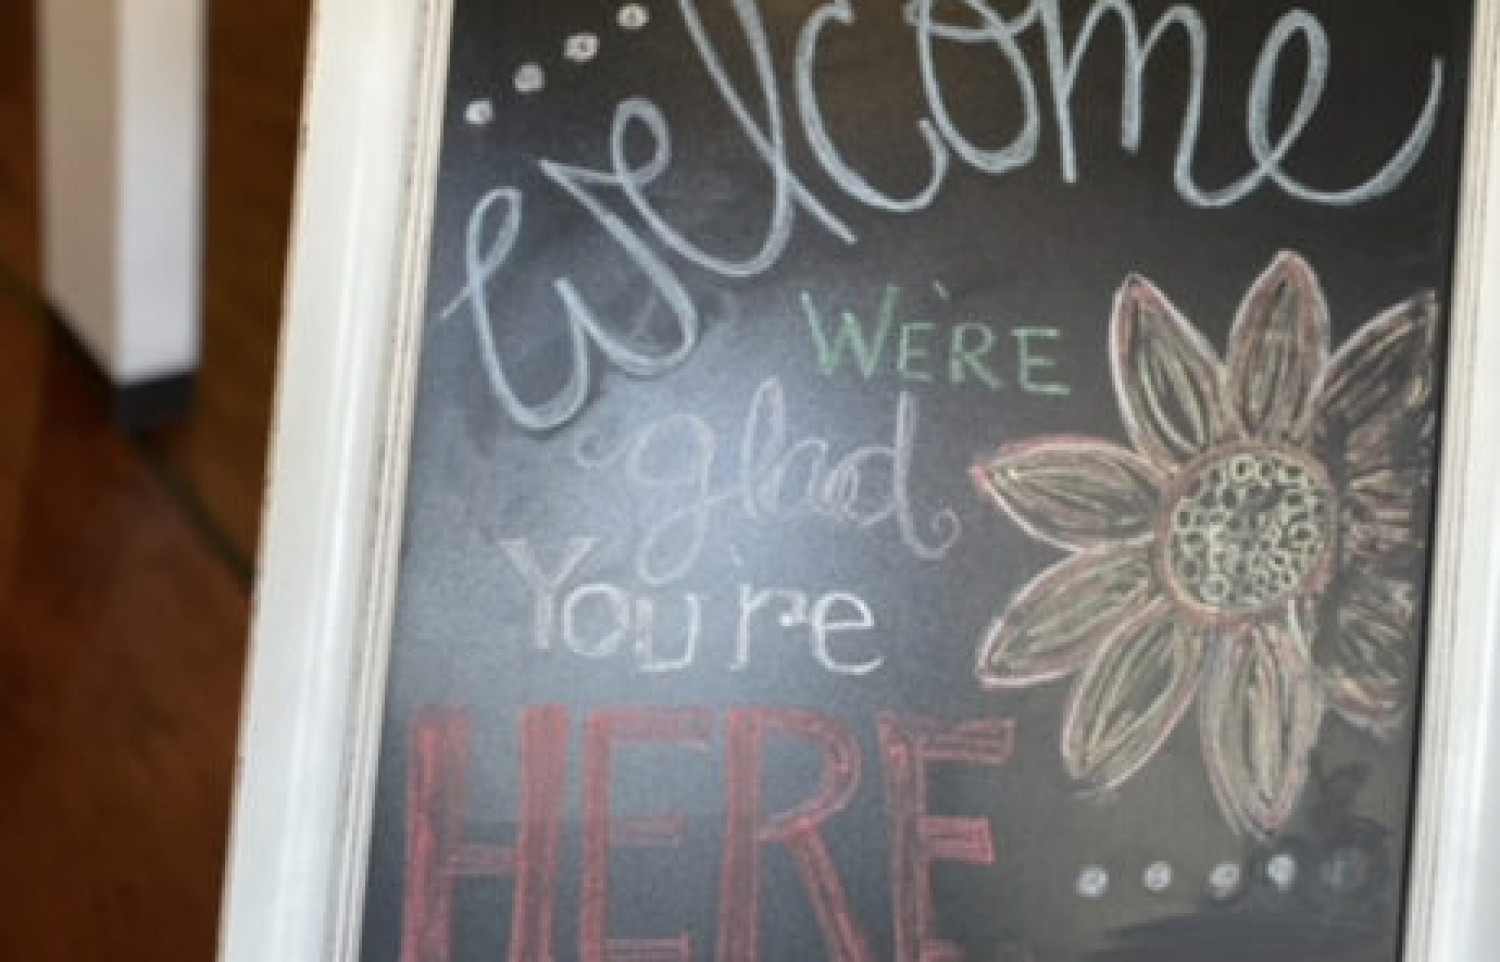 Welcome
WE'RE
glad
You're
HERE